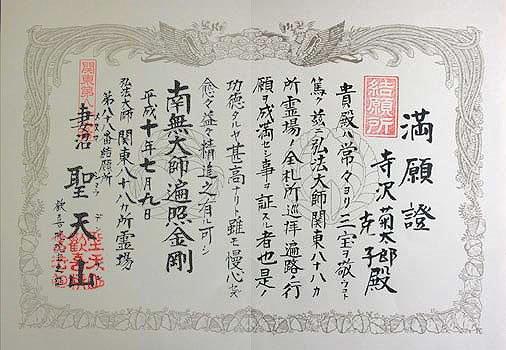 満願證
結願所
寺沢菊太郎
克子殿
貴殿ハ常々ヨリ三宝ヲ敬ウコト
篤ク茲ニ弘法大師関東八十八カ
所霊場ノ全札所巡拝遍路ノ行
願ヲ成満セシ事ヲ証スル者也是ノ
功徳タルヤ甚高シト雖モ慢心セズ
愈々益々精進之有ル可シ
南無大師遍照金剛
平成十年七月九日
弘法大師 関東八十八カ所霊場
第八十八番結願所
妻沼 聖天山